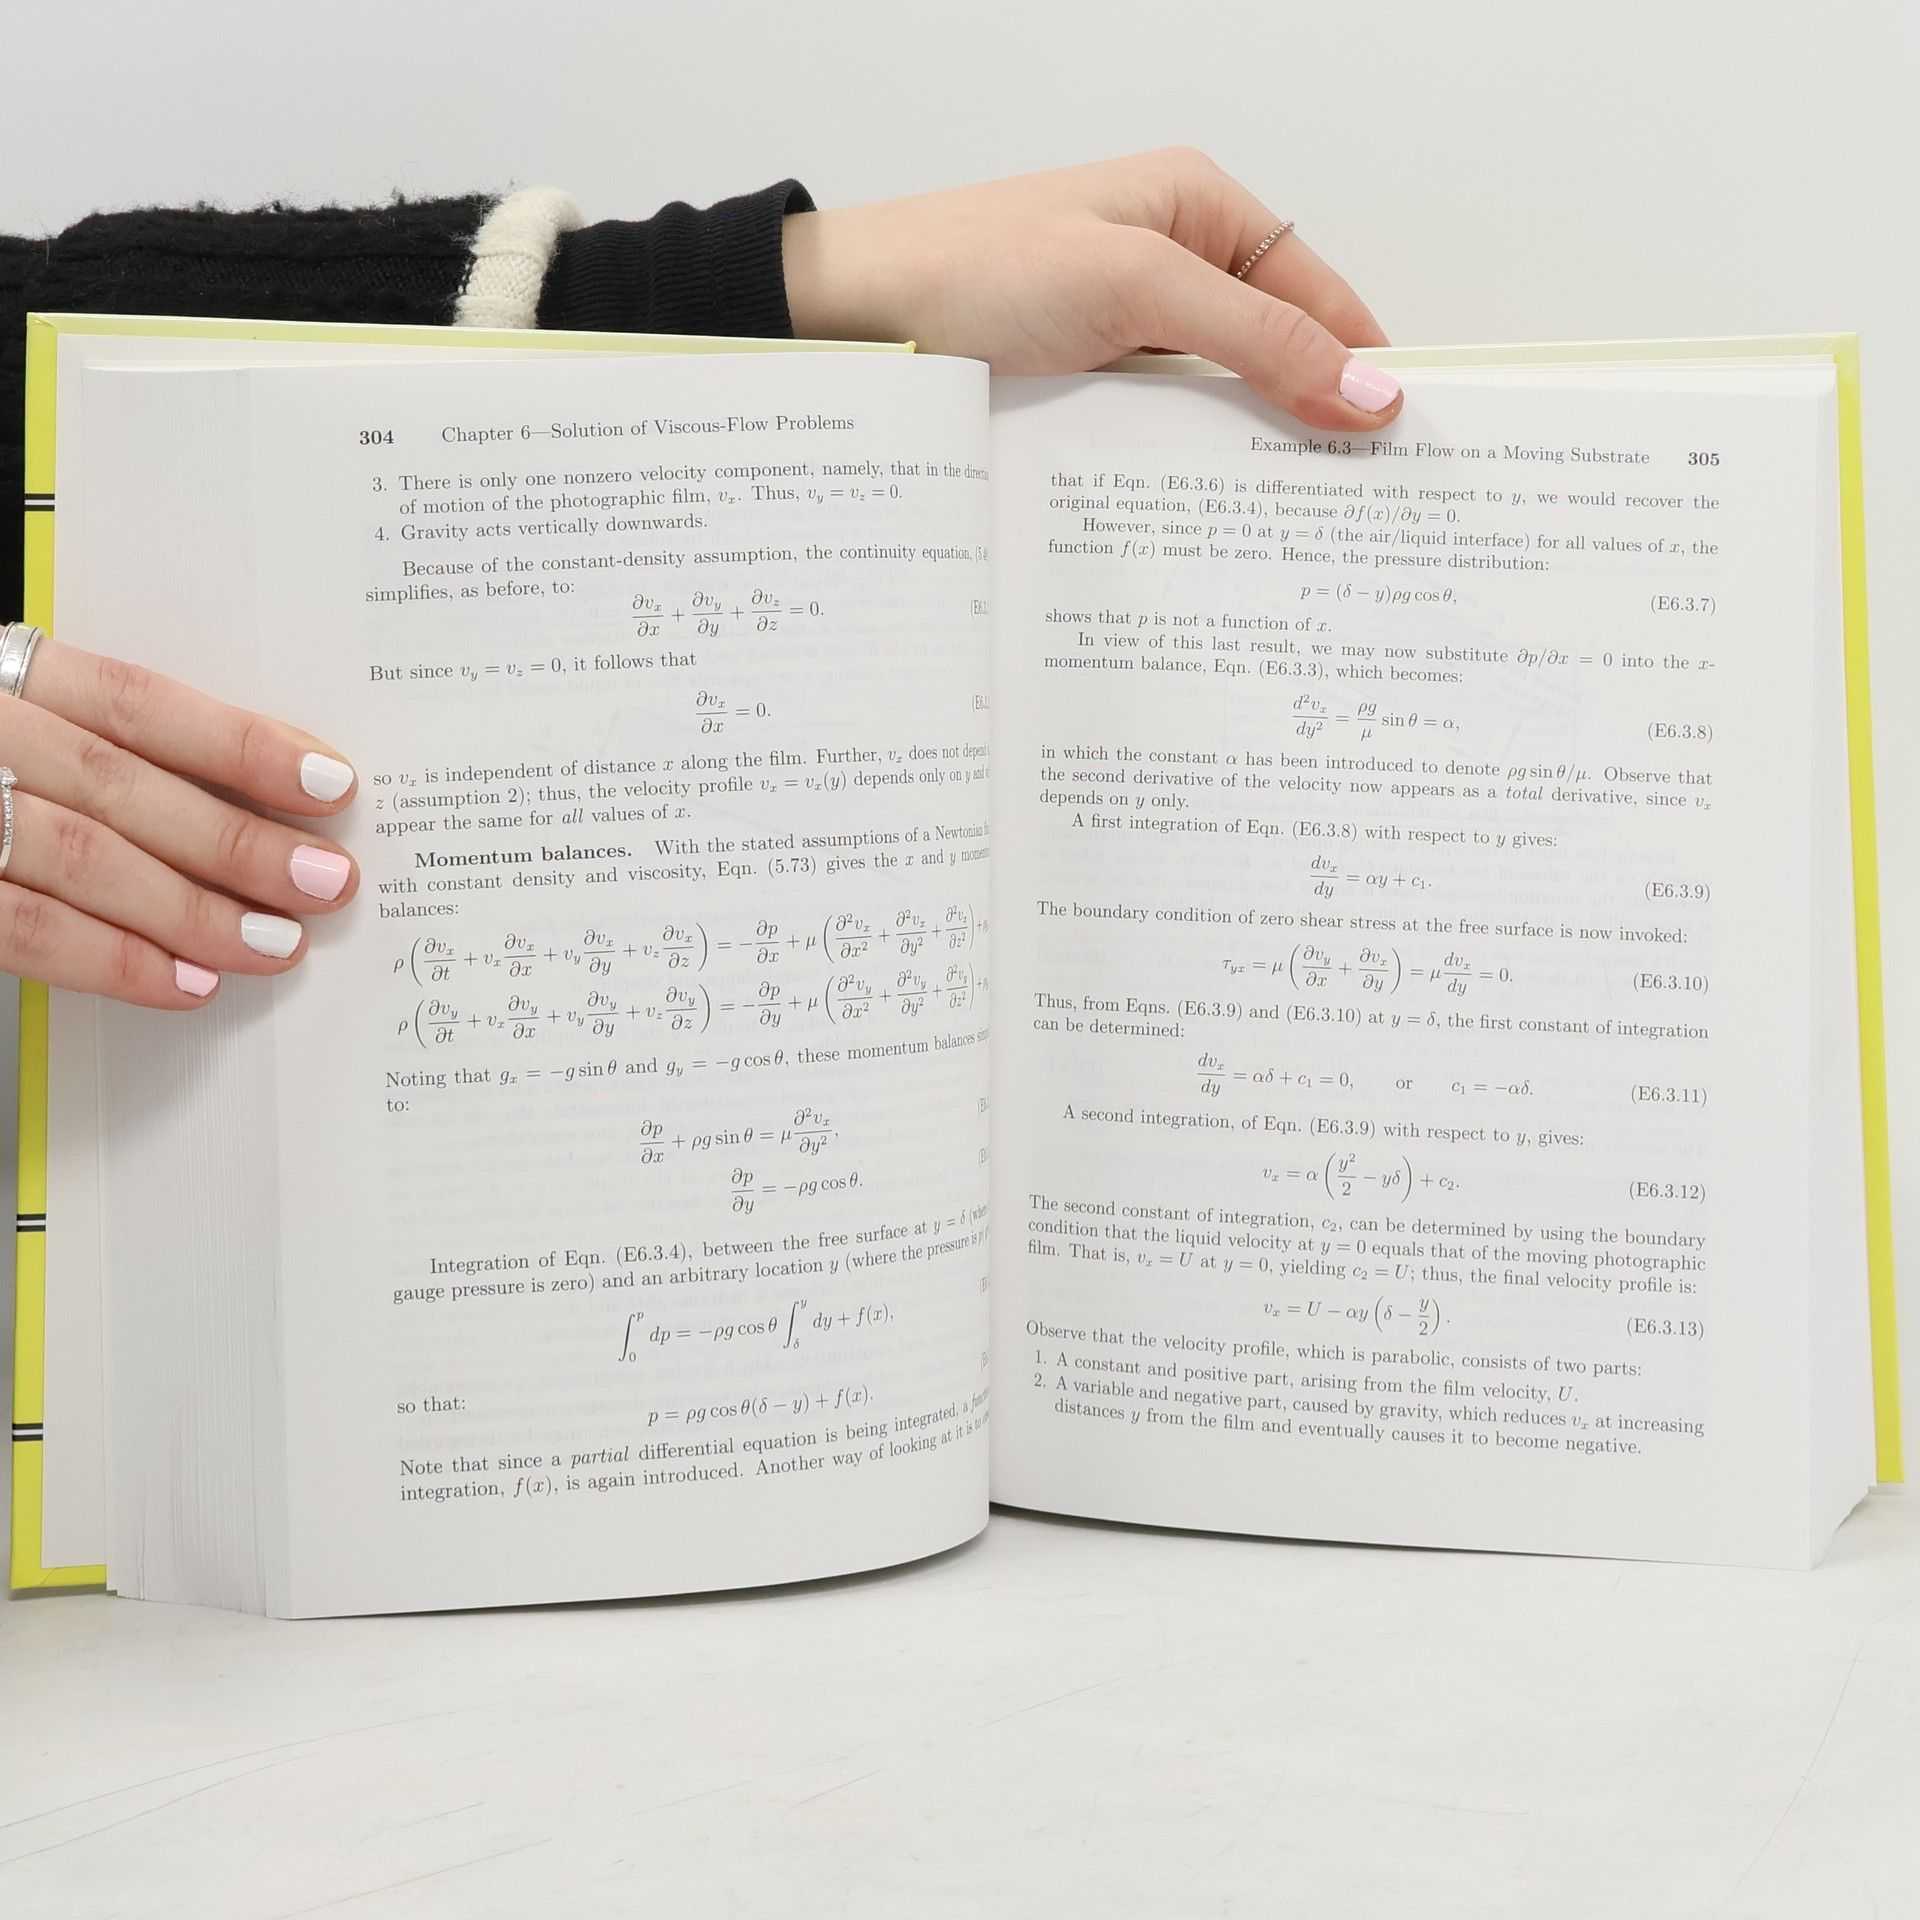 304 Chapter 6—Solution of Viscous-Flow Problems
3. There is only one nonzero velocity component, namely, that in the
of motion of the photographic film, vₓ. Thus, v_y = v_z = 0.
4. Gravity acts vertically downwards.
Because of the constant-density assumption, the continuity equation,
simplifies, as before, to:
∂vₓ/∂x + ∂v_y/∂y + ∂v_z/∂z = 0.
But since v_y = v_z = 0, it follows that
∂vₓ/∂x = 0.
so vₓ is independent of distance x along the film. Further, vₓ does not depend
z (assumption 2); thus, the velocity profile vₓ = vₓ(y) depends only on y and
appear the same for all values of x.
Momentum balances. With the stated assumptions of a Newtonian
with constant density and viscosity, Eqn. (5.73) gives the x and y
balances:
ρ(∂vₓ/∂t + vₓ ∂vₓ/∂x + v_y ∂vₓ/∂y + v_z ∂vₓ/∂z) = −∂p/∂x + μ(∂²vₓ/∂x² + ∂²vₓ/∂y² + ∂²vₓ/∂z²) +
ρ(∂v_y/∂t + vₓ ∂v_y/∂x + v_y ∂v_y/∂y + v_z ∂v_y/∂z) = −∂p/∂y + μ(∂²v_y/∂x² + ∂²v_y/∂y² + ∂²v_y/∂z²) +
Noting that gₓ = −g sin θ and g_y = −g cos θ, these momentum balances
to:
∂p/∂x + ρg sin θ = μ ∂²vₓ/∂y²,
∂p/∂y = −ρg cos θ.
Integration of Eqn. (E6.3.4), between the free surface at y = δ (where
gauge pressure is zero) and an arbitrary location y (where the pressure is
∫₀^p dp = −ρg cos θ ∫_δ^y dy + f(x),
so that:
p = ρg cos θ(δ − y) + f(x).
Note that since a partial differential equation is being integrated, a
integration, f(x), is again introduced. Another way of looking at it is to
Example 6.3—Film Flow on a Moving Substrate 305
that if Eqn. (E6.3.6) is differentiated with respect to y, we would recover the
original equation, (E6.3.4), because ∂f(x)/∂y = 0.
However, since p = 0 at y = δ (the air/liquid interface) for all values of x, the
function f(x) must be zero. Hence, the pressure distribution:
p = (δ − y)ρg cos θ, (E6.3.7)
shows that p is not a function of x.
In view of this last result, we may now substitute ∂p/∂x = 0 into the x-
momentum balance, Eqn. (E6.3.3), which becomes:
d²vₓ/dy² = ρg/μ sin θ = α, (E6.3.8)
in which the constant α has been introduced to denote ρg sin θ/μ. Observe that
the second derivative of the velocity now appears as a total derivative, since vₓ
depends on y only.
A first integration of Eqn. (E6.3.8) with respect to y gives:
dvₓ/dy = αy + c₁. (E6.3.9)
The boundary condition of zero shear stress at the free surface is now invoked:
τ_yx = μ(∂v_y/∂x + ∂vₓ/∂y) = μ dvₓ/dy = 0. (E6.3.10)
Thus, from Eqns. (E6.3.9) and (E6.3.10) at y = δ, the first constant of integration
can be determined:
dvₓ/dy = αδ + c₁ = 0, or c₁ = −αδ. (E6.3.11)
A second integration, of Eqn. (E6.3.9) with respect to y, gives:
vₓ = α(y²/2 − yδ) + c₂. (E6.3.12)
The second constant of integration, c₂, can be determined by using the boundary
condition that the liquid velocity at y = 0 equals that of the moving photographic
film. That is, vₓ = U at y = 0, yielding c₂ = U; thus, the final velocity profile is:
vₓ = U − αy(δ − y/2). (E6.3.13)
Observe that the velocity profile, which is parabolic, consists of two parts:
1. A constant and positive part, arising from the film velocity, U.
2. A variable and negative part, caused by gravity, which reduces vₓ at increasing
distances y from the film and eventually causes it to become negative.